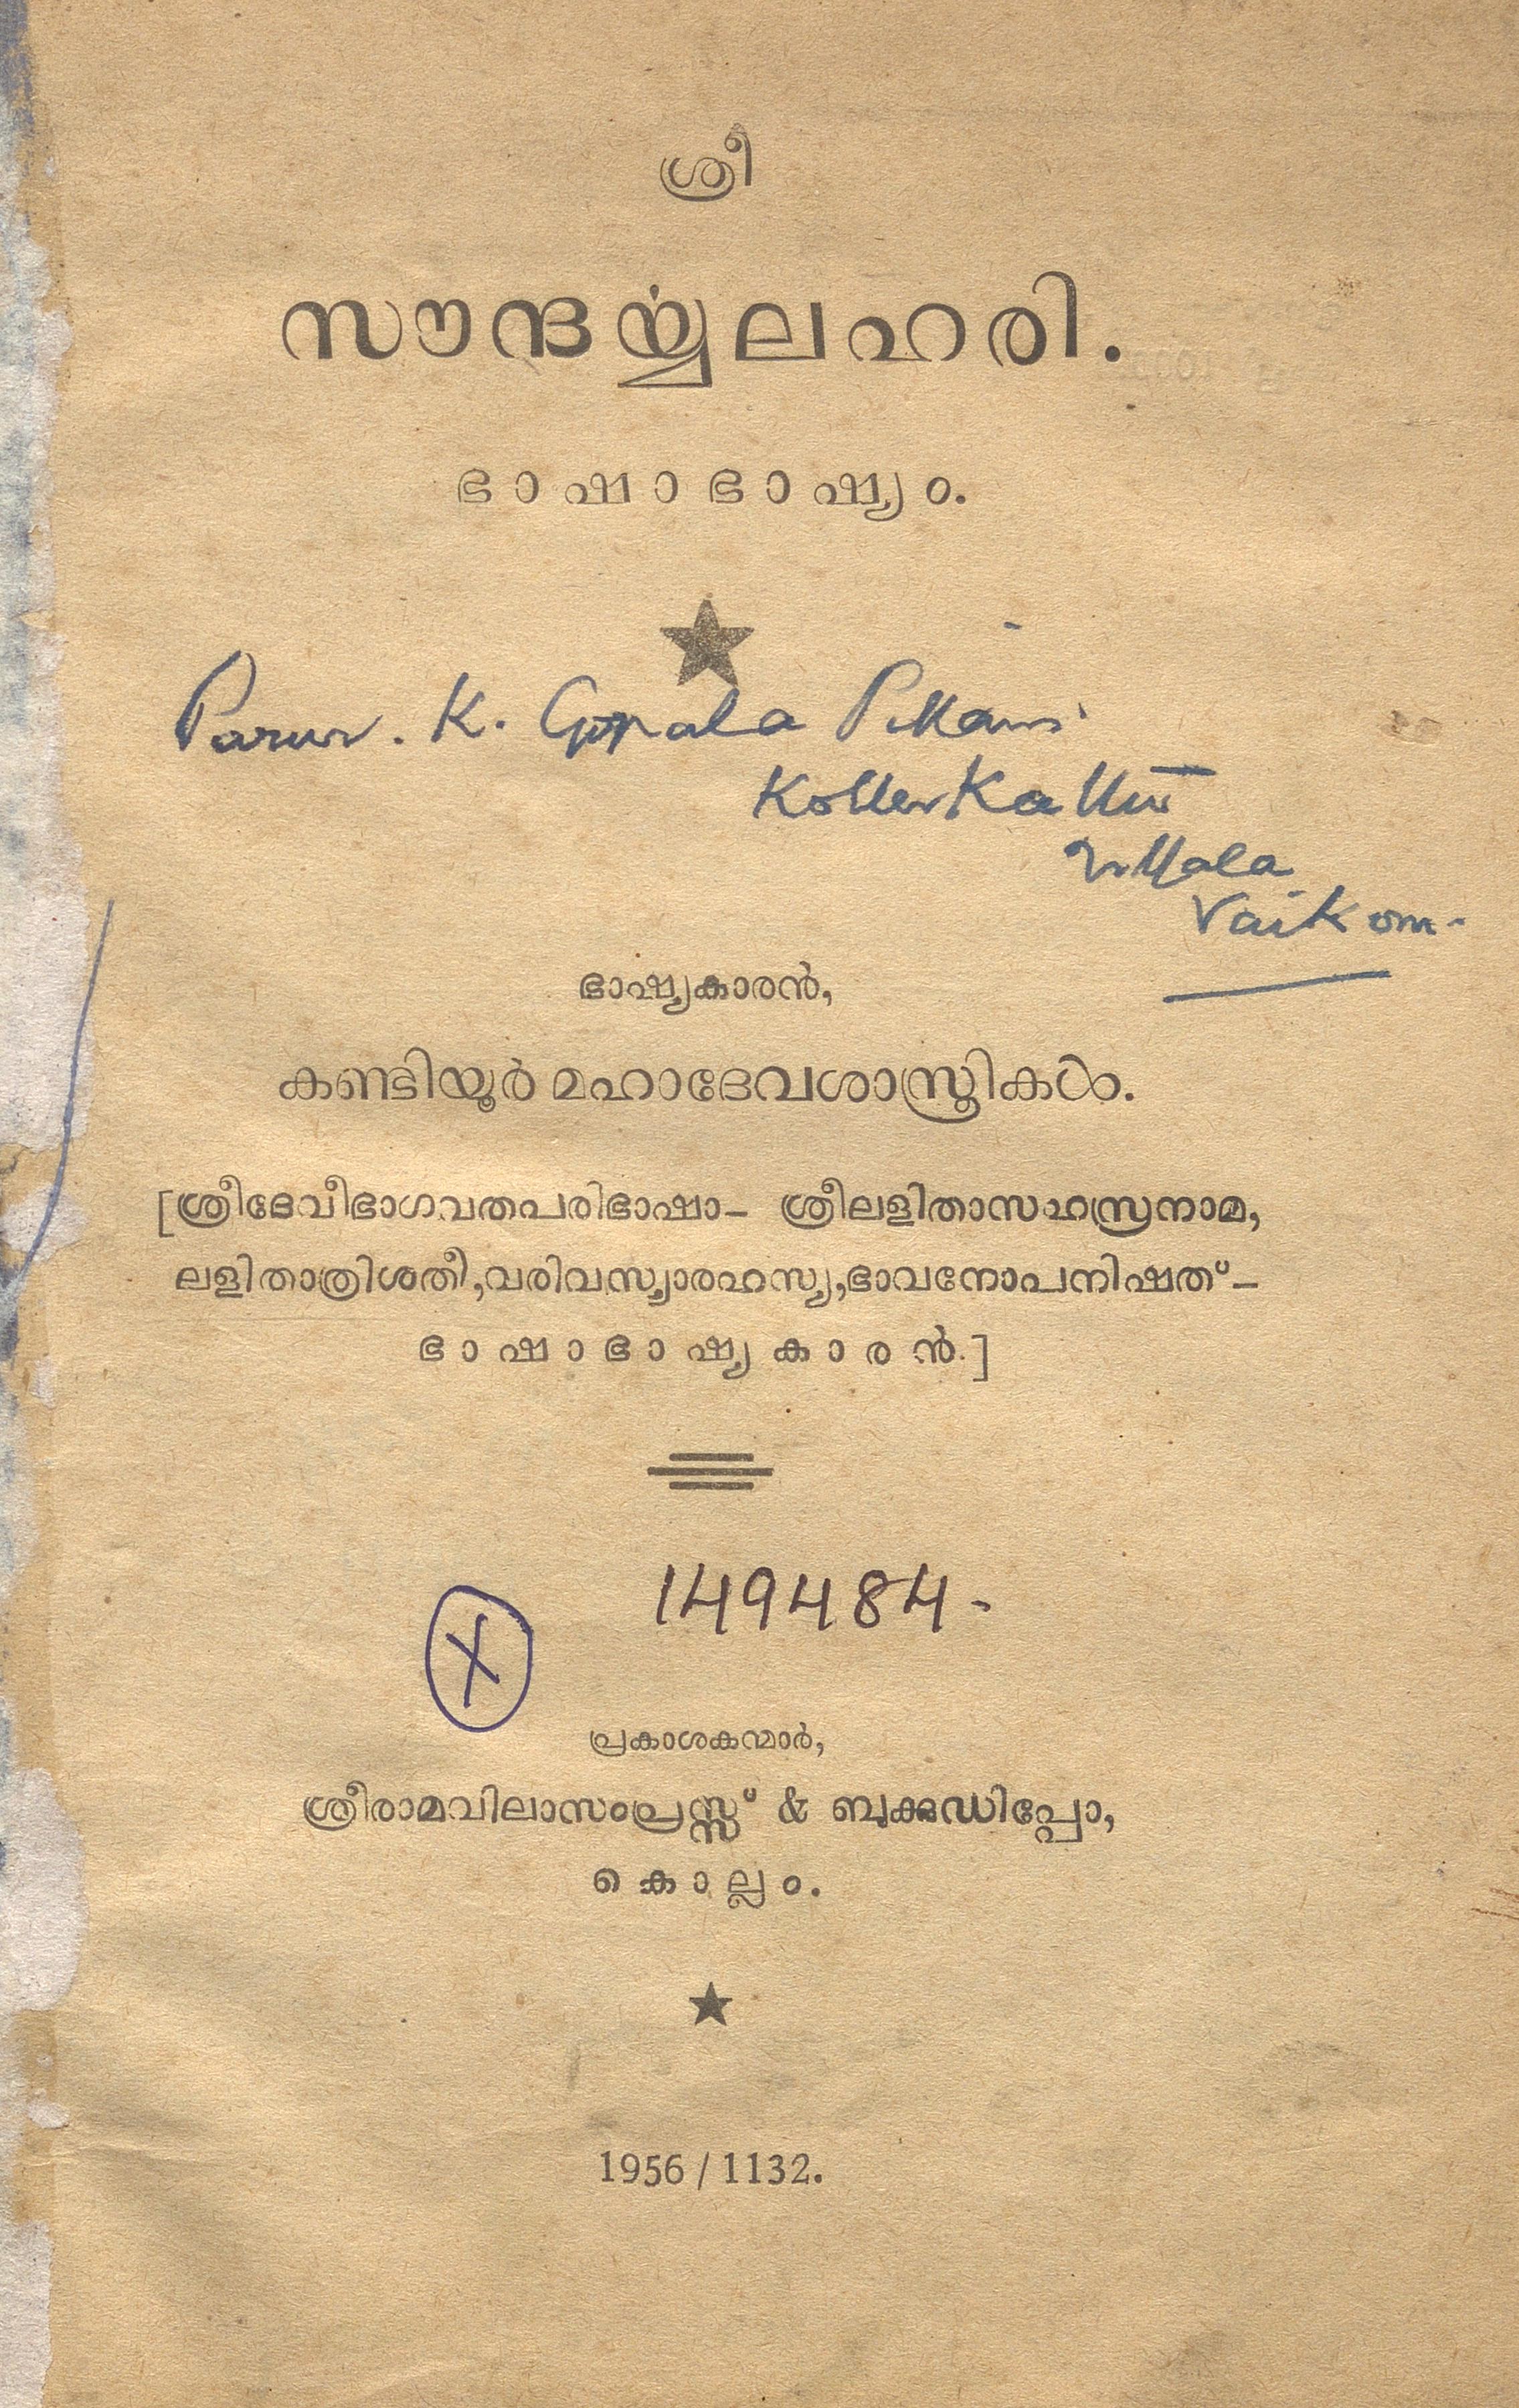 ശ്രീ
സൗന്ദൎയ്യലഹരി.
ഭാഷാഭാഷ്യം.
Parur. K. Gopala Pillai
Vaikom.
ഭാഷ്യകാരൻ,
കണ്ടിയൂർ മഹാദേവശാസ്ത്രികൾ.
[ശ്രീദേവീഭാഗവതപരിഭാഷാ– ശ്രീലളിതാസഹസ്രനാമ,
ലളിതാത്രിശതീ,വരിവസ്യാരഹസ്യ,ഭാവനോപനിഷത്–
ഭാഷാഭാഷ്യകാരൻ.]
149484-
X
പ്രകാശകന്മാർ,
ശ്രീരാമവിലാസംപ്രസ്സ് & ബുക്കുഡിപ്പോ,
കൊല്ലം.
1956 / 1132.